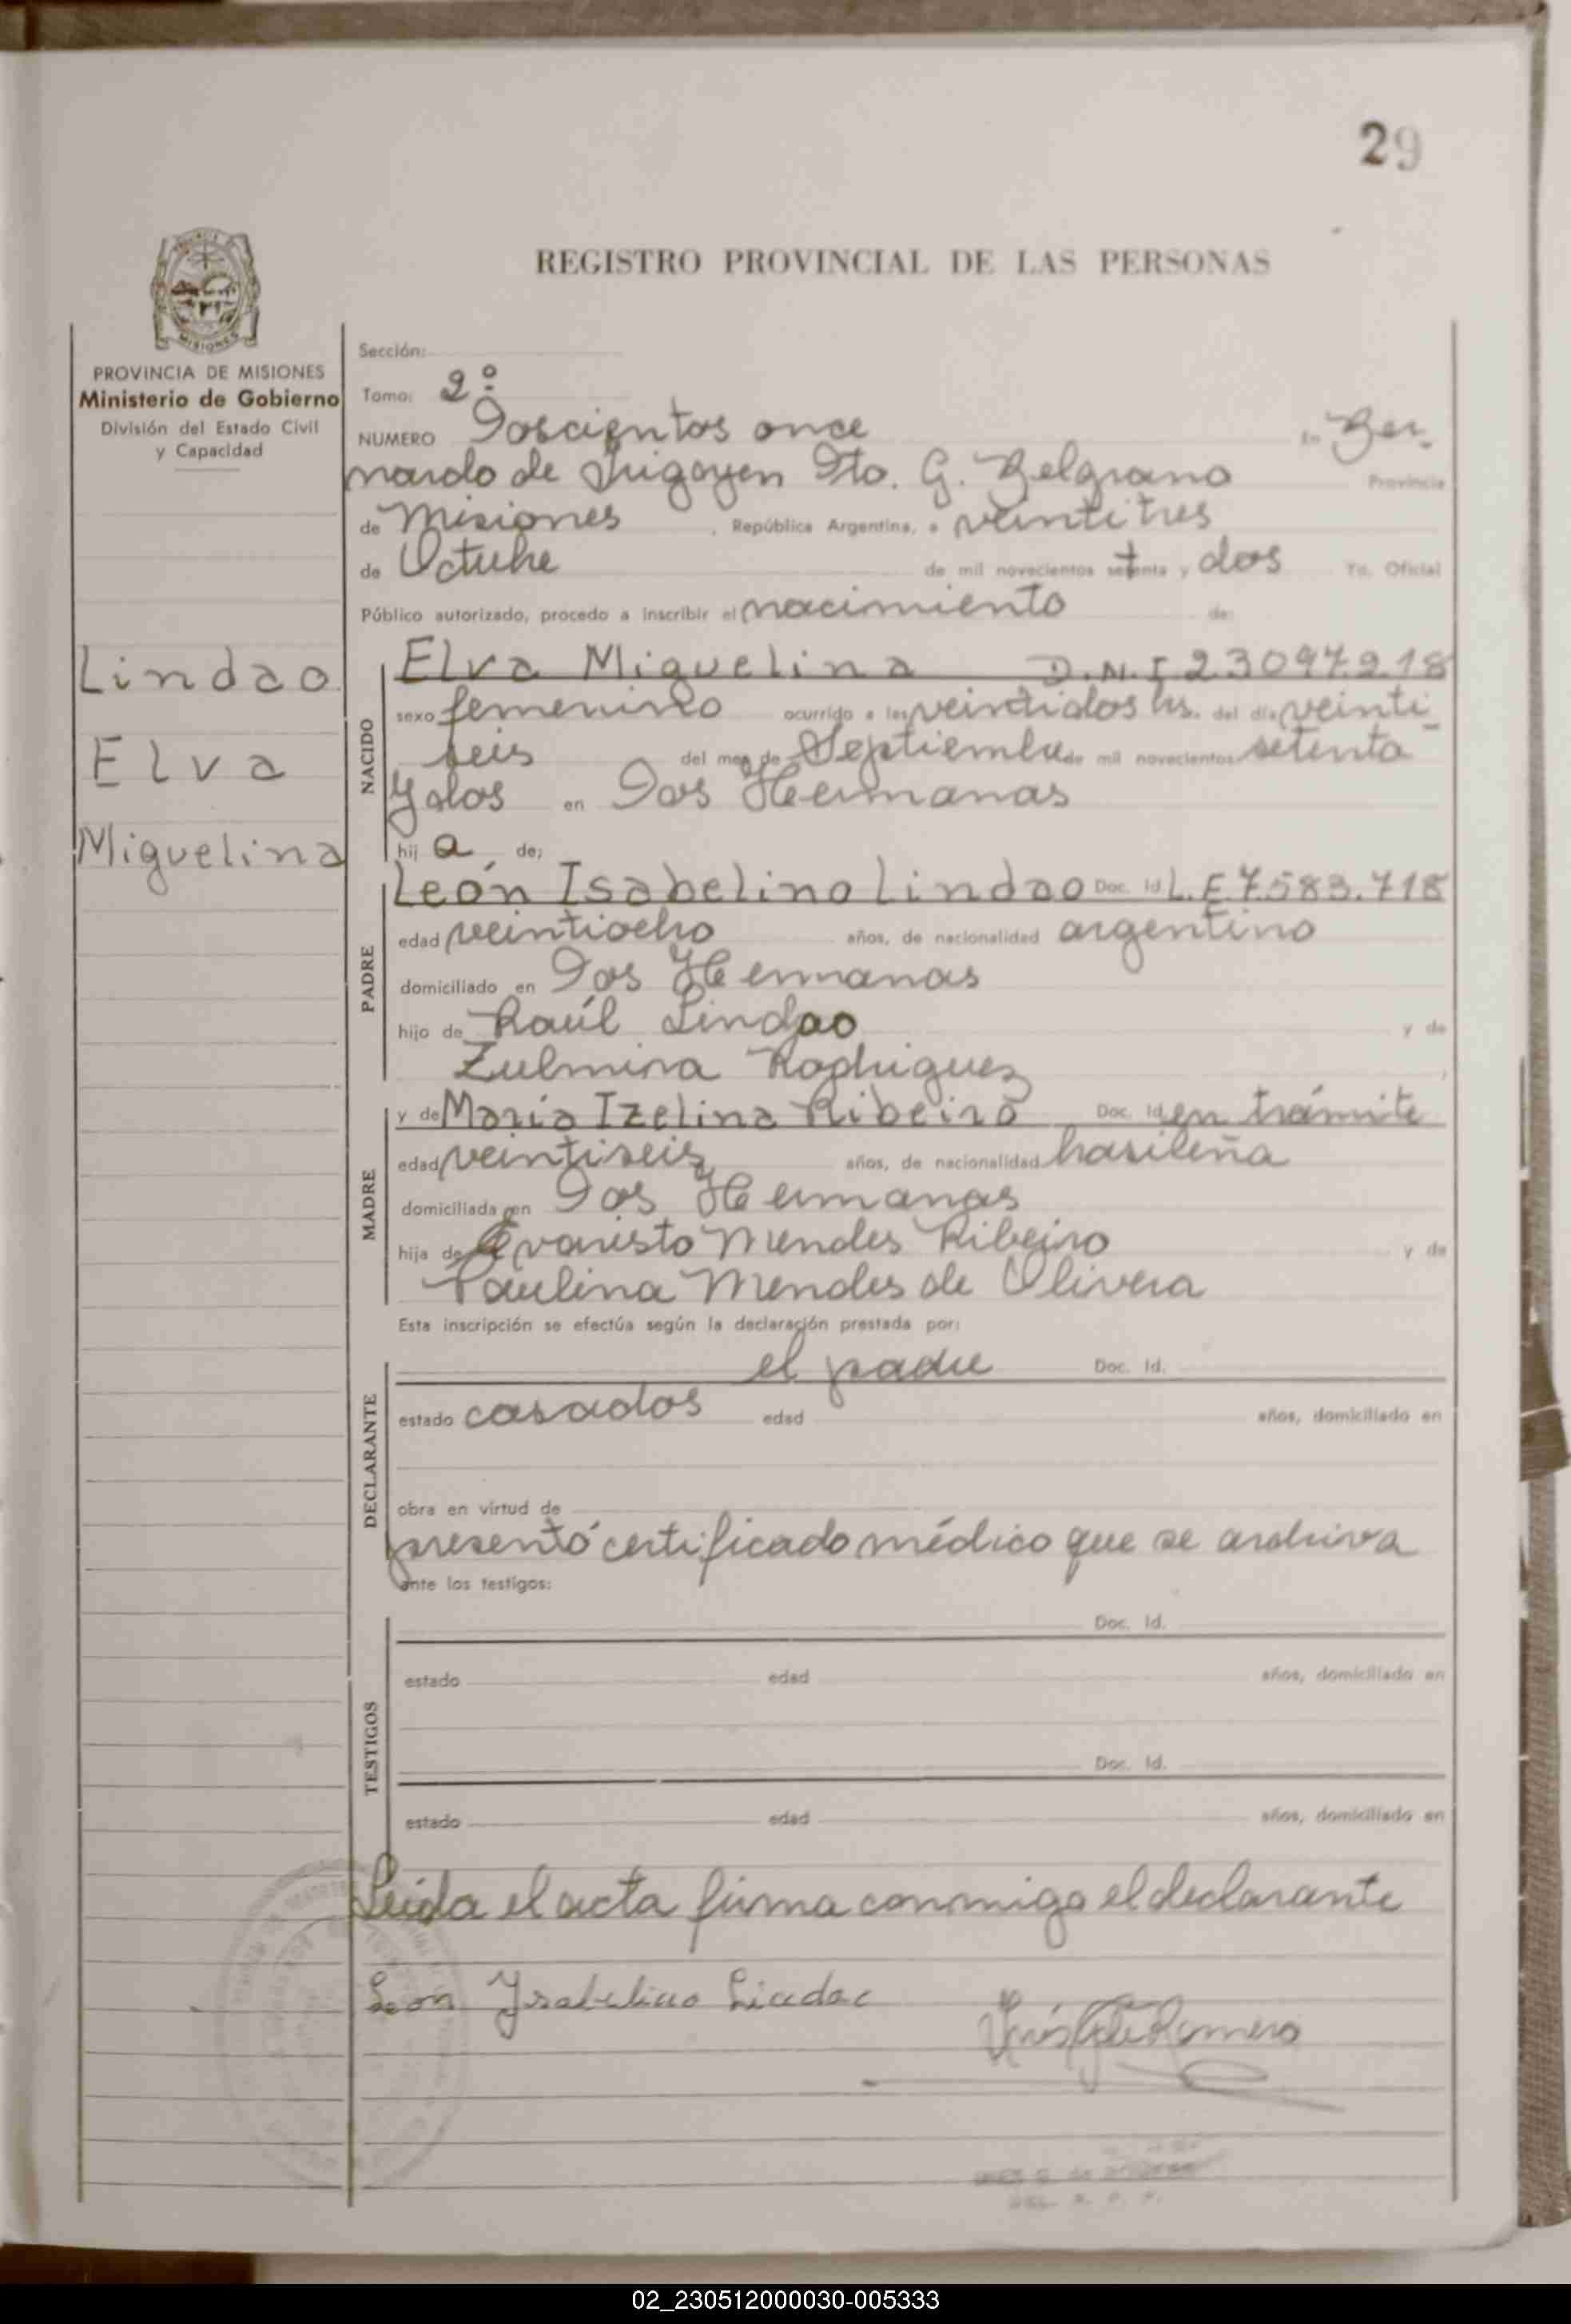 29
REGISTRO PROVINCIAL DE LAS PERSONAS
MISIONES
PROVINCIA DE MISIONES
Ministerio de Gobierno
División del Estado Civil
y Capacidad
Lindao
Elva
Miguelina
Sección:
Tomo: 2º
NUMERO Doscientos once En Ber-
nardo de Irigoyen Dto. G. Belgrano Provincia
de Misiones, República Argentina, a veintitres
de Octubre de mil novecientos setenta y dos Yo. Oficial
Público autorizado, procedo a inscribir el nacimiento de:
NACIDO
Elva Miguelina D.N.I 23.097.918
sexo femenino ocurrido a las veintidos hs. del día veinti-
seis del mes de Septiembre de mil novecientos setenta
y dos en Dos Hermanas
hij a de:
PADRE
León Isabelino Lindao Doc. Id. L.E 7.583.718
edad veintiocho años, de nacionalidad argentino
domiciliado en Dos Hermanas
hijo de Raúl Lindao y de
Zulmira Rodriguez
MADRE
y de María Izelina Ribeiro Doc. Id. en trámite
edad veintiseis años, de nacionalidad brasileña
domiciliada en Dos Hermanas
hija de Evaristo Mendes Ribeiro y de
Paulina Mendes de Olivera
Esta inscripción se efectúa según la declaración prestada por:
DECLARANTE
el padre Doc. Id.
estado casados edad años, domiciliado en
obra en virtud de
presentó certificado médico que se archiva
ante los testigos:
TESTIGOS
Doc. Id.
estado edad años, domiciliado en
Doc. Id.
estado edad años, domiciliado en
Leída el acta firma conmigo el declarante
Leon Ysabelino Lindao
Romero
02_230512000030-005333